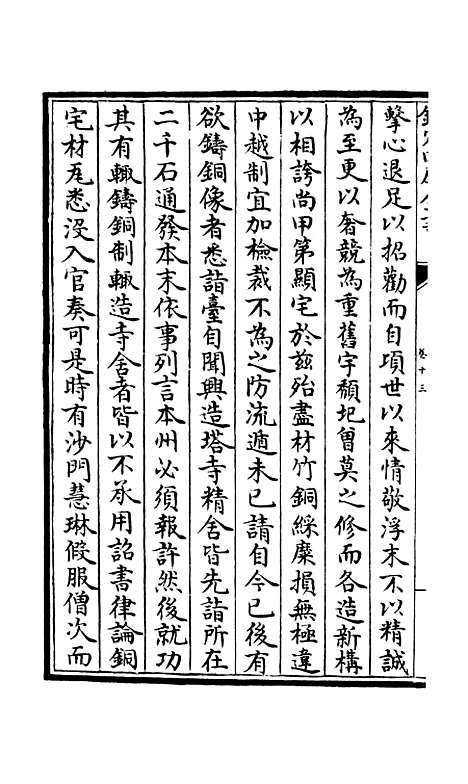 卷十三
擊心退足以招勸而自項世以來情敬浮末不以精誠
為至更以奢競為重舊宇頹圯曾莫之修而各造新構
以相誇尚甲第顯宅於兹殆盡材竹銅綵糜損無極違
中越制宜加檢裁不為之防流遁未已請自今已後有
欲鑄銅像者悉詣臺自聞興造塔寺精舍皆先詣所在
二千石通發本末依事列言本州必須報許然後就功
其有輙鑄銅制輙造寺舍者皆以不承用詔書律論銅
宅材瓦悉沒入官奏可是時有沙門慧琳假服僧次而